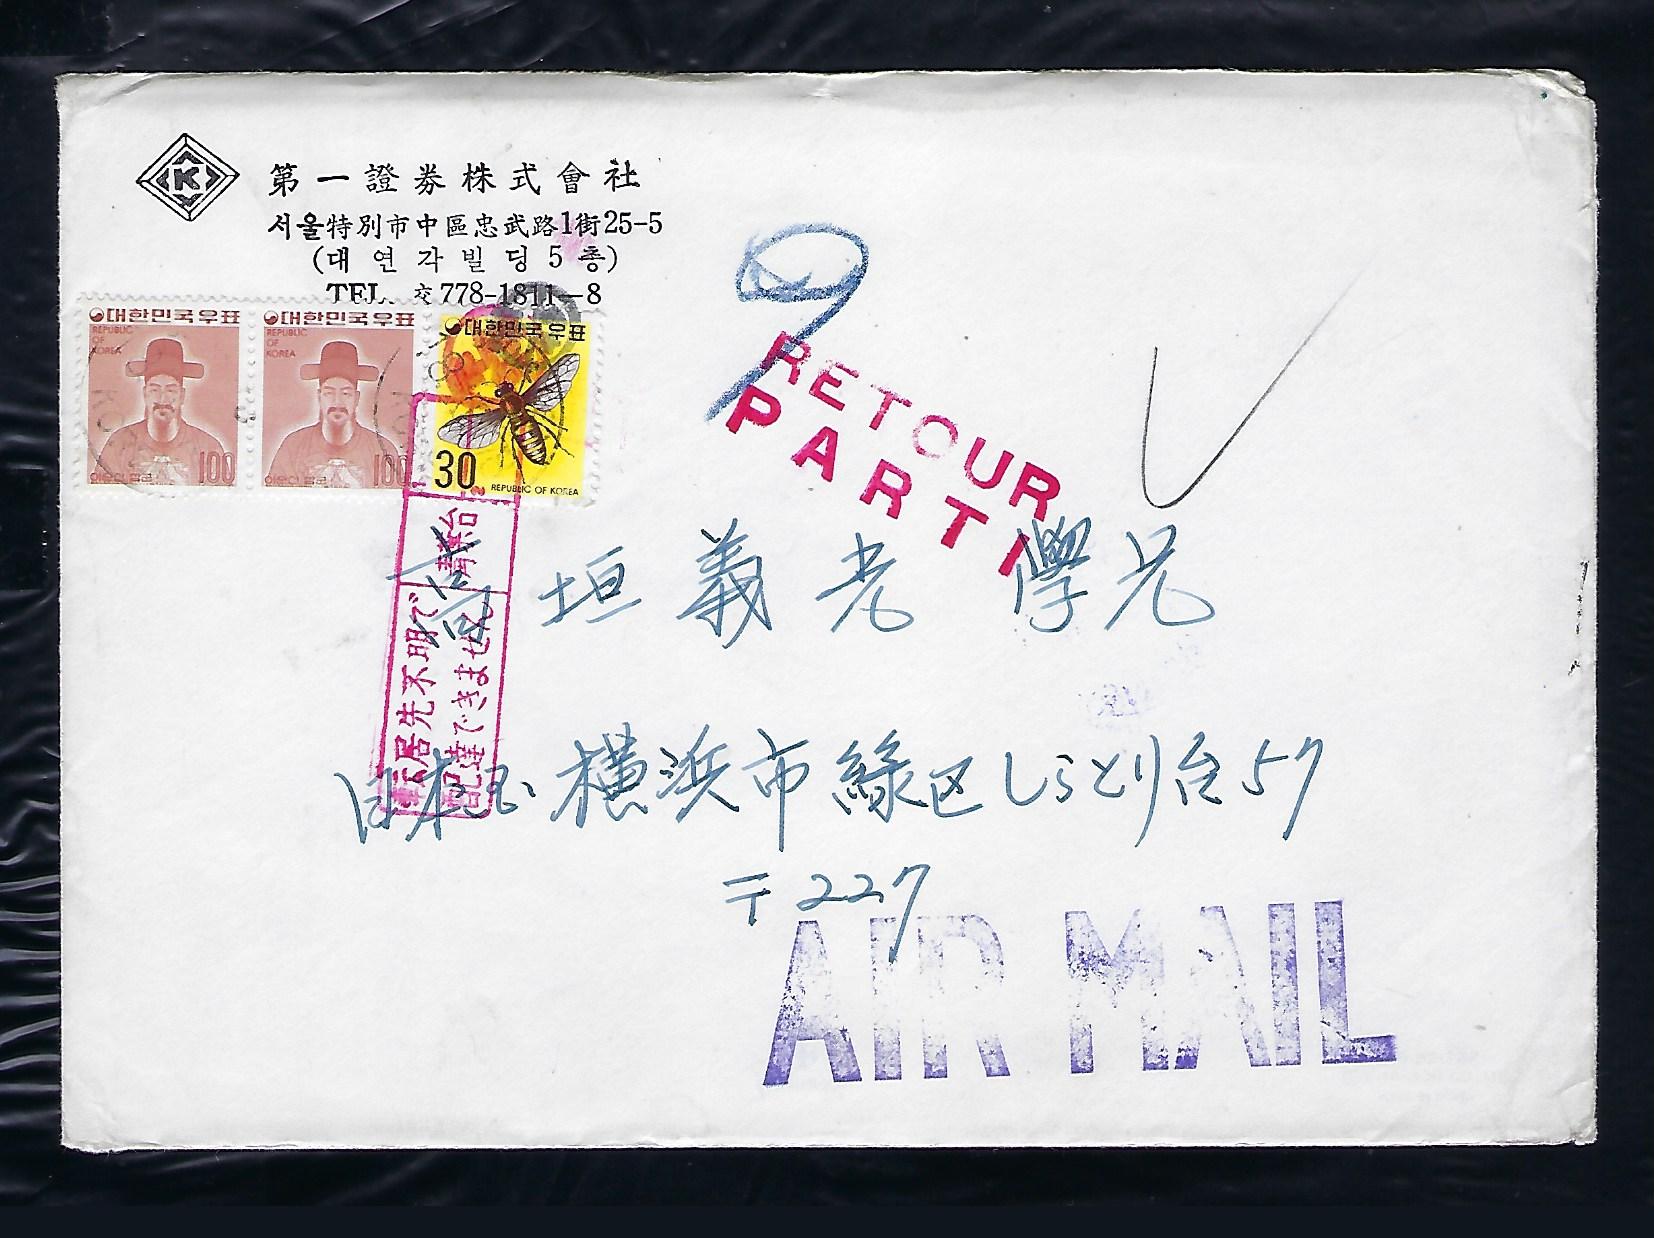 第一證券株式會社
서울特別市中區忠武路1街25-5
(대연각빌딩 5층)
TEL. 交 778-1811-8
대한민국우표
REPUBLIC
OF
KOREA
100
대한민국우표
REPUBLIC
OF
KOREA
100
대한민국우표
30
REPUBLIC OF KOREA
RETOUR
PARTI
青葉台
転居先不明で
配達できません
高垣義光 學兄
日本国 横浜市緑区しらとり台57
〒227
AIR MAIL